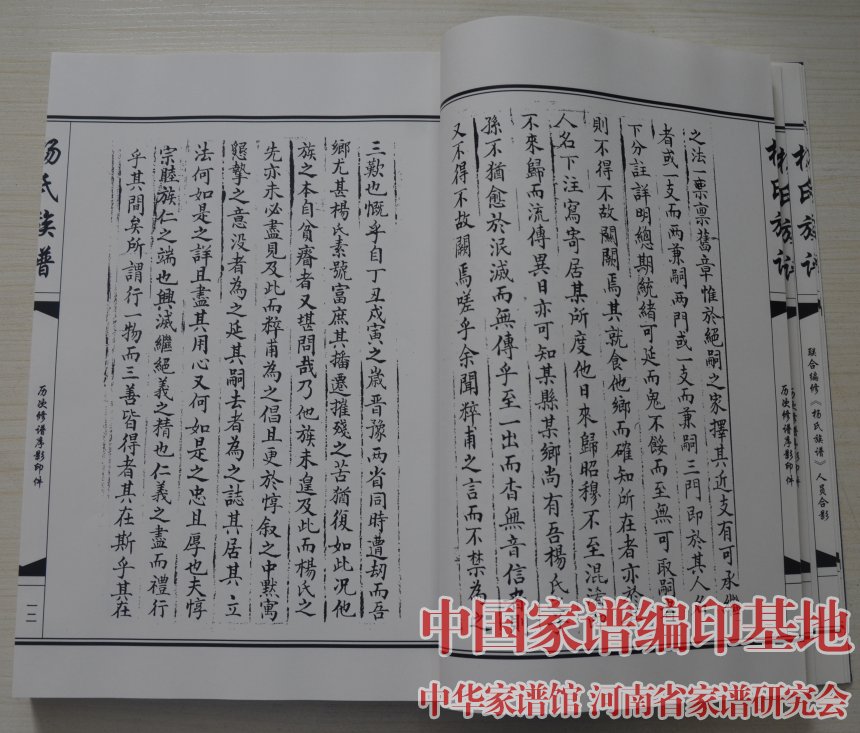 之法一稟禀舊章惟於絕嗣之家擇其近支有可承繼
者或一支而兩兼嗣兩門或一支而兼嗣三門即於其人
下分註詳明總期統緒可延而鬼不餒而至無可取嗣
則不得不故闕闕焉其就食他鄉而確知所在者亦於
人名下注寫寄居某所度他日來歸昭穆不至混淆
不來歸而流傳異日亦可知某縣某鄉尚有吾楊氏
孫不猶愈於泯滅而無傳乎至一出而杳無音信
又不得不故闕焉嗟乎余聞粹甫之言而不禁為之
三歎也慨乎自丁丑戊寅之歲晋豫兩省同時遭劫而吾
鄉尤甚楊氏素號富庶其播遷摧殘之苦猶復如此況他
族之本自貧瘠者又堪問哉乃他族未遑及此而楊氏之
先亦未必盡見及此而粹甫為之倡且更於惇叙之中黙寓
懇摯之意没者為之延其嗣去者為之誌其居其立
法何如是之詳且盡其用心又何如是之忠且厚也夫惇
宗睦族仁之端也興滅繼絕義之精也仁義之盡而禮行
乎其間矣所謂行一物而三善皆得者其在斯乎其在
杨氏族谱
历次修谱序影印件
一二
杨氏族谱
历次修谱序影印件
杨氏族谱
联合编修《杨氏族谱》人员合影
中国家谱编印基地
中华家谱馆 河南省家谱研究会